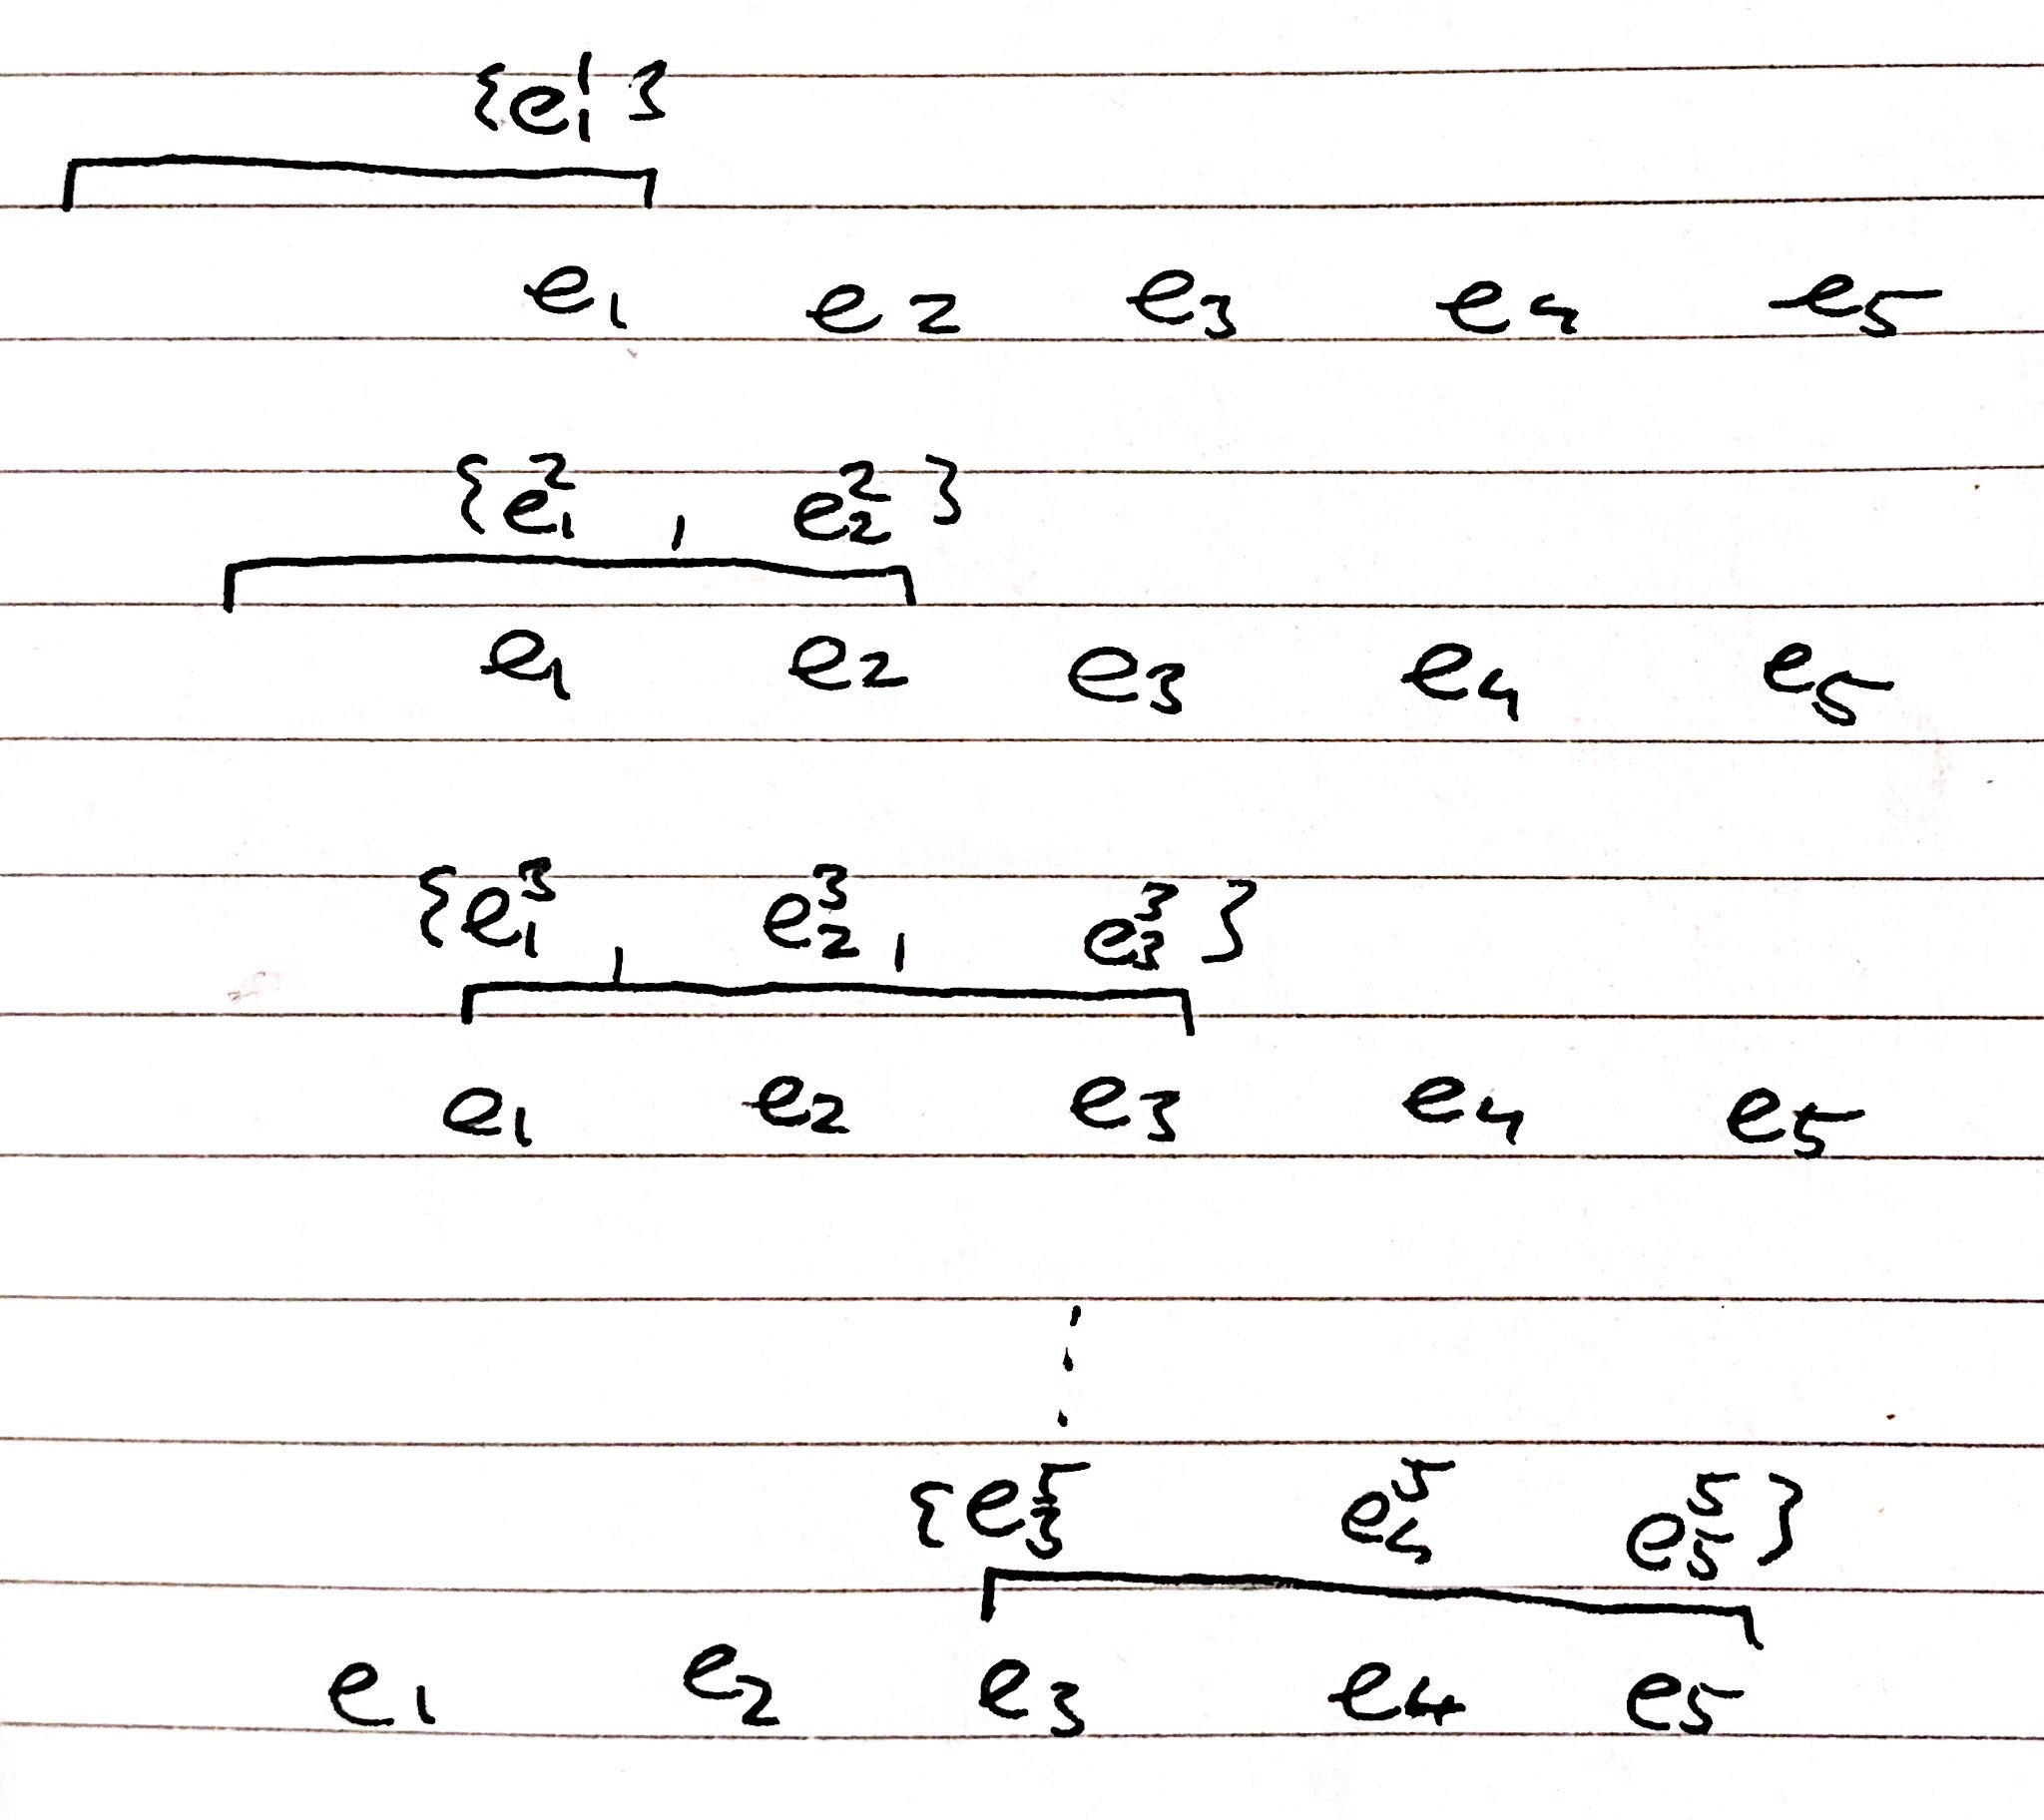 {e₁¹}
e₁ e₂ e₃ e₄ e₅
{e₁², e₂²}
e₁ e₂ e₃ e₄ e₅
{e₁³, e₂³, e₃³}
e₁ e₂ e₃ e₄ e₅
⋮
{e₃⁵ e₄⁵ e₅⁵}
e₁ e₂ e₃ e₄ e₅